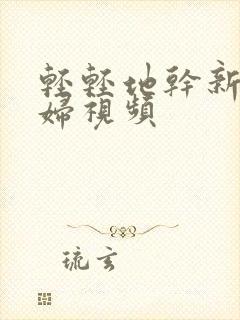 輕輕地幹新
婦視頻
琉玄